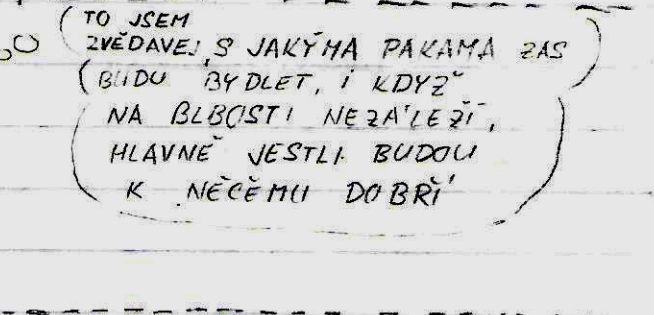 TO JSEM
ZVĚDAVEJ, S JAKÝMA PAKAMA ZAS
BUDU BYDLET, I KDYŽ
NA BLBOSTI NEZÁLEŽÍ,
HLAVNĚ JESTLI BUDOU
K NĚČEMU DOBŘÍ